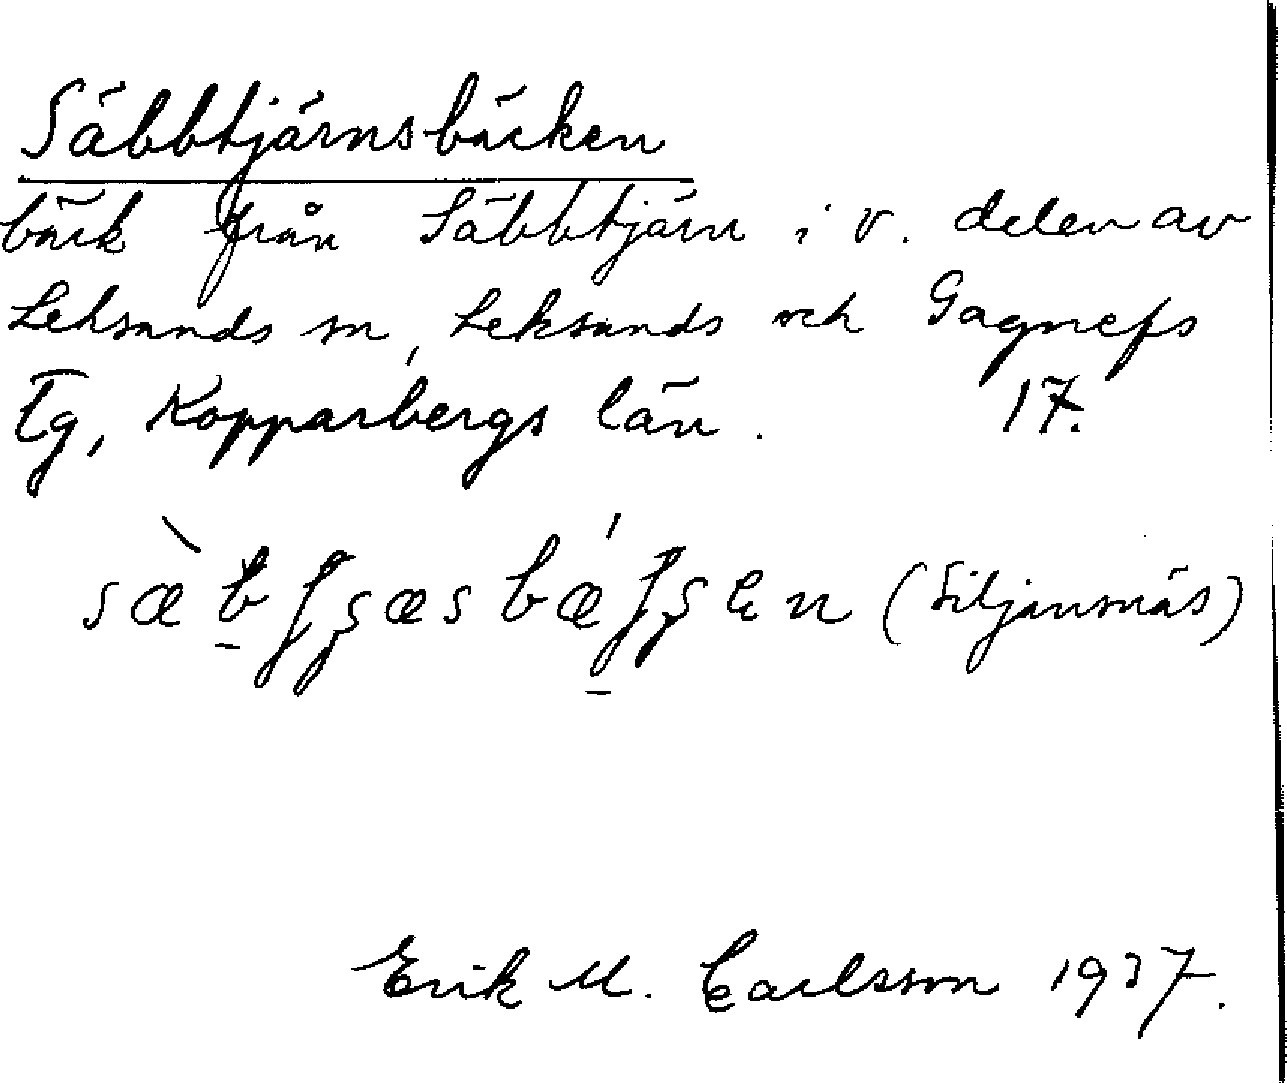 Säbbtjärnsbäcken
bäck från Säbbtjärn i v. delen av
Leksands sn, Leksands och Gagnefs
tg, Kopparbergs län. 17.
(Siljansnäs)
Erik M. Carlsson 1937.